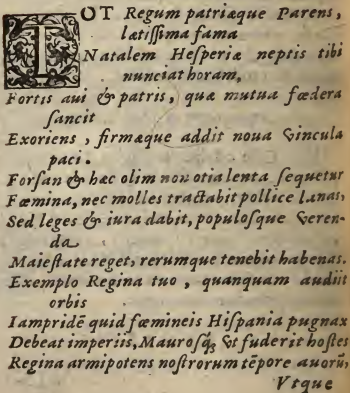 TOT Regum patriæque Parens,
lætiſſima fama
Natalem Heſperiæ neptis tibi
nunciat horam,
Fortis aui & patris, quæ mutua fœdera
ſancit
Exoriens, firmæque addit noua vincula
paci.
Forſan & hæc olim non otia lenta ſequetur
Fœmina, nec molles tractabit pollice lanas,
Sed leges & iura dabit, populoſque veren-
da
Maieſtate reget, rerumque tenebit habenas.
Exemplo Regina tuo, quanquam audiit
orbis
Iampridē quid fœmineis Hiſpania pugnax
Debeat imperiis, Mauroſq; vt fuderit hoſtes
Regina armipotens noſtrorum tēpore auorū,
Vtque